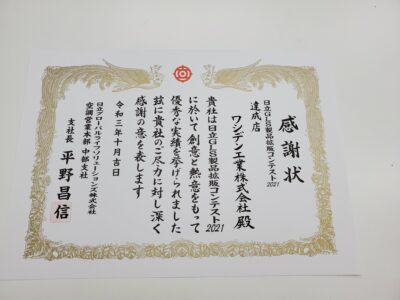 感謝状
日立GLS製品拡販コンテスト2021
達成店
ワシデン工業株式会社 殿
貴社は日立GLS製品拡販コンテスト2021
に於いて創意と熱意をもって
優秀な実績を挙げられました
茲に貴社のご尽力に対し深く
感謝の意を表します
令和三年十月吉日
日立グローバルライフソリューションズ株式会社
空調営業本部 中部支社
支社長 平野昌信